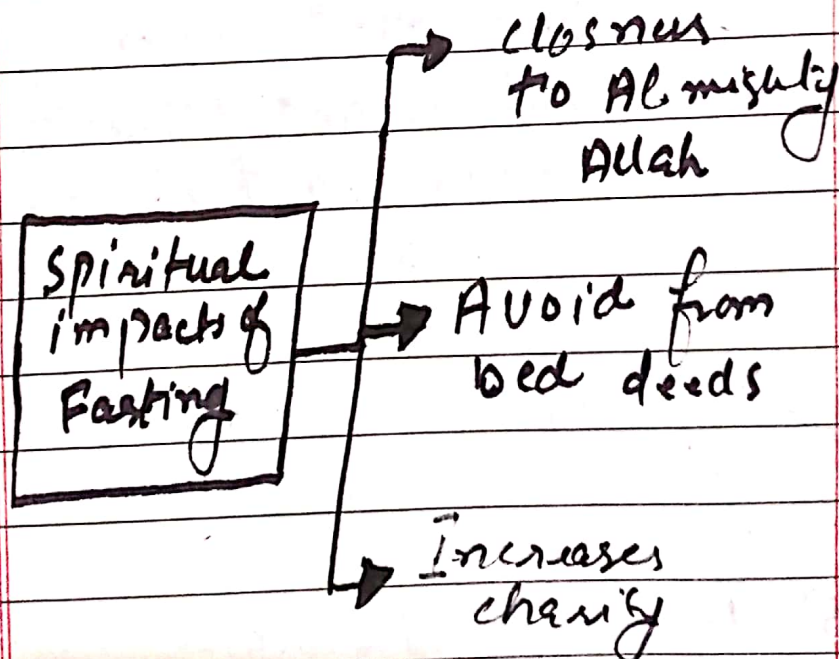 Spiritual
impacts of
Fasting
closnes
to Almighty
Allah
Avoid from
bed deeds
Increases
charity